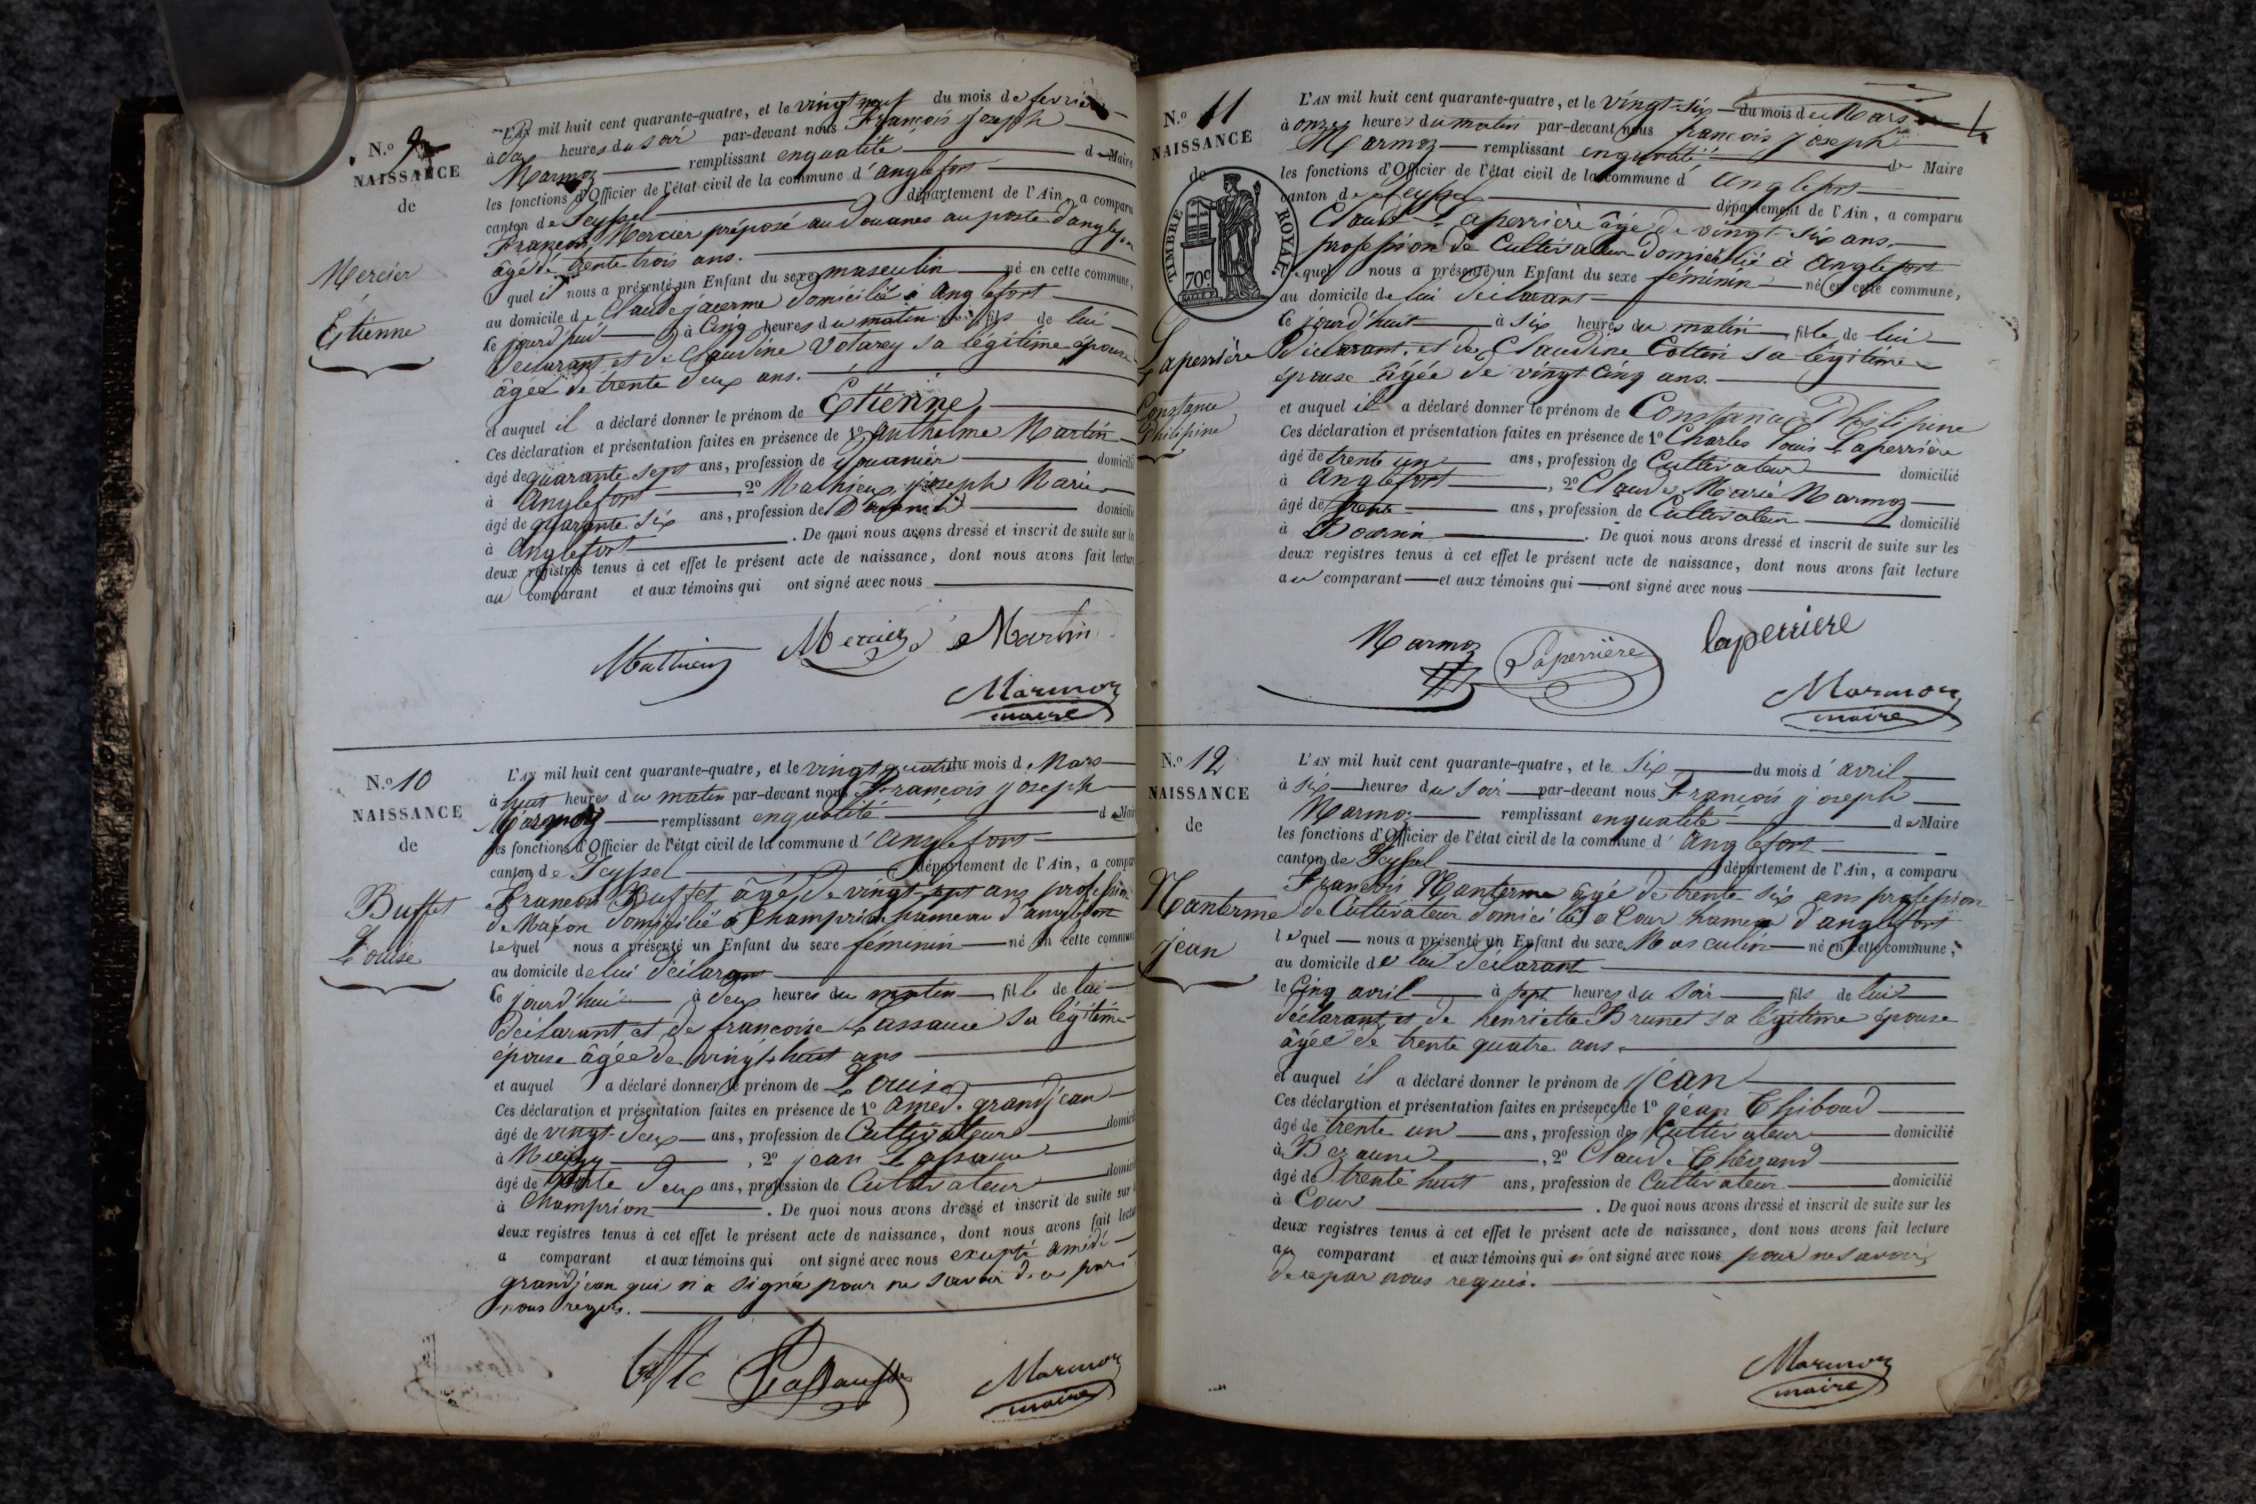 N.º 9
NAISSANCE
de
Mercier
Étienne
L'AN mil huit cent quarante-quatre, et le vingt neuf du mois de fevrier
à heures du soir par-devant nous François joseph
Marmoz remplissant enqualité de Maire
les fonctions d'Officier de l'état civil de la commune d'anglefort
canton de Seyssel département de l'Ain, a comparu
François Mercier préposé au Douanes au poste d'anglefort
âgé de trente trois ans.
quel il nous a présenté un Enfant du sexe masculin né en cette commune,
au domicile de Claude jacerme domicilié à anglefort
ce jourd'hui à Cinq heures du matin fils de lui
Déclarant et de Claudine Votarey sa légitime épouse
âgée de trente deux ans.
et auquel il a déclaré donner le prénom de Étienne
Ces déclaration et présentation faites en présence de 1º anthelme Martin
âgé de quarante sept ans, profession de Douanier domicilié
à Anglefort 2º Mathieu joseph Marie
âgé de quarante six ans, profession de Douanier domicilié
à Anglefort . De quoi nous avons dressé et inscrit de suite sur les
deux registres tenus à cet effet le présent acte de naissance, dont nous avons fait lecture
au comparant et aux témoins qui ont signé avec nous
Mathieu Mercier Martin
Marmoz
maire
N.º 10
NAISSANCE
de
Buffet
Louise
L'AN mil huit cent quarante-quatre, et le vingt quatre du mois de Mars
à huit heures du matin par-devant nous François joseph
Marmoz remplissant enqualité de Maire
les fonctions d'Officier de l'état civil de la commune d'anglefort
canton de Seyssel département de l'Ain, a comparu
François Buffet âgé de vingt sept ans profession
de Maçon domicilié à Champrion hameau d'anglefort
lequel nous a présenté un Enfant du sexe féminin né en cette commune
au domicile de lui déclarant
ce jourd'hui à deux heures du matin fille de lui
déclarant et de francoise Lassauce sa légitime
épouse âgée de vingt huit ans
et auquel a déclaré donner le prénom de Louise
Ces déclaration et présentation faites en présence de 1º amed. grandjean
âgé de vingt-deux ans, profession de Cultivateur domicilié
à 2º jean Lassauce
âgé de trente deux ans, profession de Cultivateur domicilié
à Champrion . De quoi nous avons dressé et inscrit de suite sur
deux registres tenus à cet effet le présent acte de naissance, dont nous avons fait lecture
a comparant et aux témoins qui ont signé avec nous excepté amédé
grandjean qui n'a signé pour ne savoir de ce par
nous requis.
Marmoz
maire
N.º 11
NAISSANCE
de
TIMBRE ROYAL
70c
Laperrière
Constance
Philipine
L'AN mil huit cent quarante-quatre, et le vingt-six du mois de Mars
à onze heures du matin par-devant nous françois joseph
Marmoz remplissant enqualité de Maire
les fonctions d'Officier de l'état civil de la commune d'Anglefort
canton de Seyssel département de l'Ain, a comparu
Claude Laperrière âgé de vingt-six ans.
profession de Cultivateur domicilié à Anglefort
lequel nous a présenté un Enfant du sexe féminin né en cette commune,
au domicile de lui déclarant
ce jourd'huit à six heures du matin fille de lui
déclarant et de Claudine Cottin sa légitime
épouse âgée de vingt cinq ans.
et auquel il a déclaré donner le prénom de Constance Philipine
Ces déclaration et présentation faites en présence de 1º Charles Louis Laperrière
âgé de trente un ans, profession de Cultivateur domicilié
à Anglefort , 2º Claude Marie Marmoz
âgé de ans, profession de Cultivateur domicilié
à . De quoi nous avons dressé et inscrit de suite sur les
deux registres tenus à cet effet le présent acte de naissance, dont nous avons fait lecture
au comparant et aux témoins qui ont signé avec nous
Marmoz Laperrière laperriere
Marmoz
maire
N.º 12
NAISSANCE
de
Manterme
jean
L'AN mil huit cent quarante-quatre, et le six du mois d'avril
à six heures du soir par-devant nous François joseph
Marmoz remplissant enqualité de Maire
les fonctions d'Officier de l'état civil de la commune d'Anglefort
canton de Seyssel département de l'Ain, a comparu
François Manterme âgé de trente six ans profession
de Cultivateur domicilié à Cour hameau d'anglefort
lequel nous a présenté un Enfant du sexe Masculin né en cette commune,
au domicile de lui déclarant
le Cinq avril à sept heures du soir fils de lui
déclarant, et de henriette Brunet sa légitime épouse
âgée de trente quatre ans.
et auquel il a déclaré donner le prénom de jean
Ces déclaration et présentation faites en présence de 1º jean Thiboud
âgé de trente un ans, profession de Cultivateur domicilié
à , 2º Claude
âgé de trente huit ans, profession de Cultivateur domicilié
à Cour . De quoi nous avons dressé et inscrit de suite sur les
deux registres tenus à cet effet le présent acte de naissance, dont nous avons fait lecture
au comparant et aux témoins qui n'ont signé avec nous pour ne savoir
de ce par nous requis.
Marmoz
maire